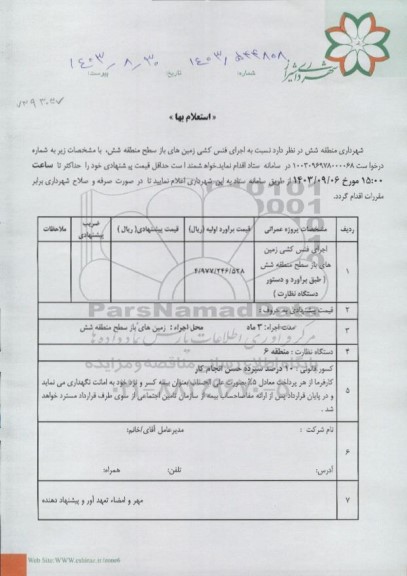 شهرداری شیراز
شماره: ۱۴۰۳/۵۴۴۸۰۸
تاریخ: ۱۴۰۳/۸/۳۰
پیوست:
« استعلام بها »
شهرداری منطقه شش در نظر دارد نسبت به اجرای فنس کشی زمین های باز سطح منطقه شش، با مشخصات زیر به شماره
درخواست ۱۰۰۳۰۹۶۹۷۸۰۰۰۰۶۸ در سامانه ستاد اقدام نماید.خواهشمند است حداقل قیمت پیشنهادی خود را حداکثر تا ساعت
۱۵:۰۰ مورخ ۱۴۰۳/۰۹/۰۶ از طریق سامانه ستاد به این شهرداری اعلام نمایید تا در صورت صرفه و صلاح شهرداری برابر
مقررات اقدام گردد.
ردیف مشخصات پروژه عمرانی قیمت برآورد اولیه (ریال) قیمت پیشنهادی( ریال ) ضریب پیشنهادی ملاحظات
۱ اجرای فنس کشی زمین
های باز سطح منطقه شش
( طبق برآورد و دستور
دستگاه نظارت ) ۴/۹۷۷/۲۴۶/۵۲۸
۲ قیمت پیشنهادی به حروف :
۳ مدت اجراء: ۳ ماه محل اجراء : زمین های باز سطح منطقه شش
۴ دستگاه نظارت : منطقه ۶
۵ کسور قانونی : ۱۰ درصد سپرده حسن انجام کار
کارفرما از هر پرداخت معادل ۵٪ بصورت علی الحساب بعنوان بیمه کسر و نزد خود به امانت نگهداری می نماید
و در پایان قرارداد پس از ارائه مفاصاحساب بیمه از سازمان تامین اجتماعی از سوی طرف قرارداد مسترد خواهد
شد .
۶ نام شرکت : مدیرعامل آقای/خانم:
آدرس: تلفن: همراه:
۷ مهر و امضاء تعهد آور و پیشنهاد دهنده
ParsNamadData
پایگاه اطلاع رسانی مناقصه و مزایده
Web Site:WWW.eshiraz.ir/zone6